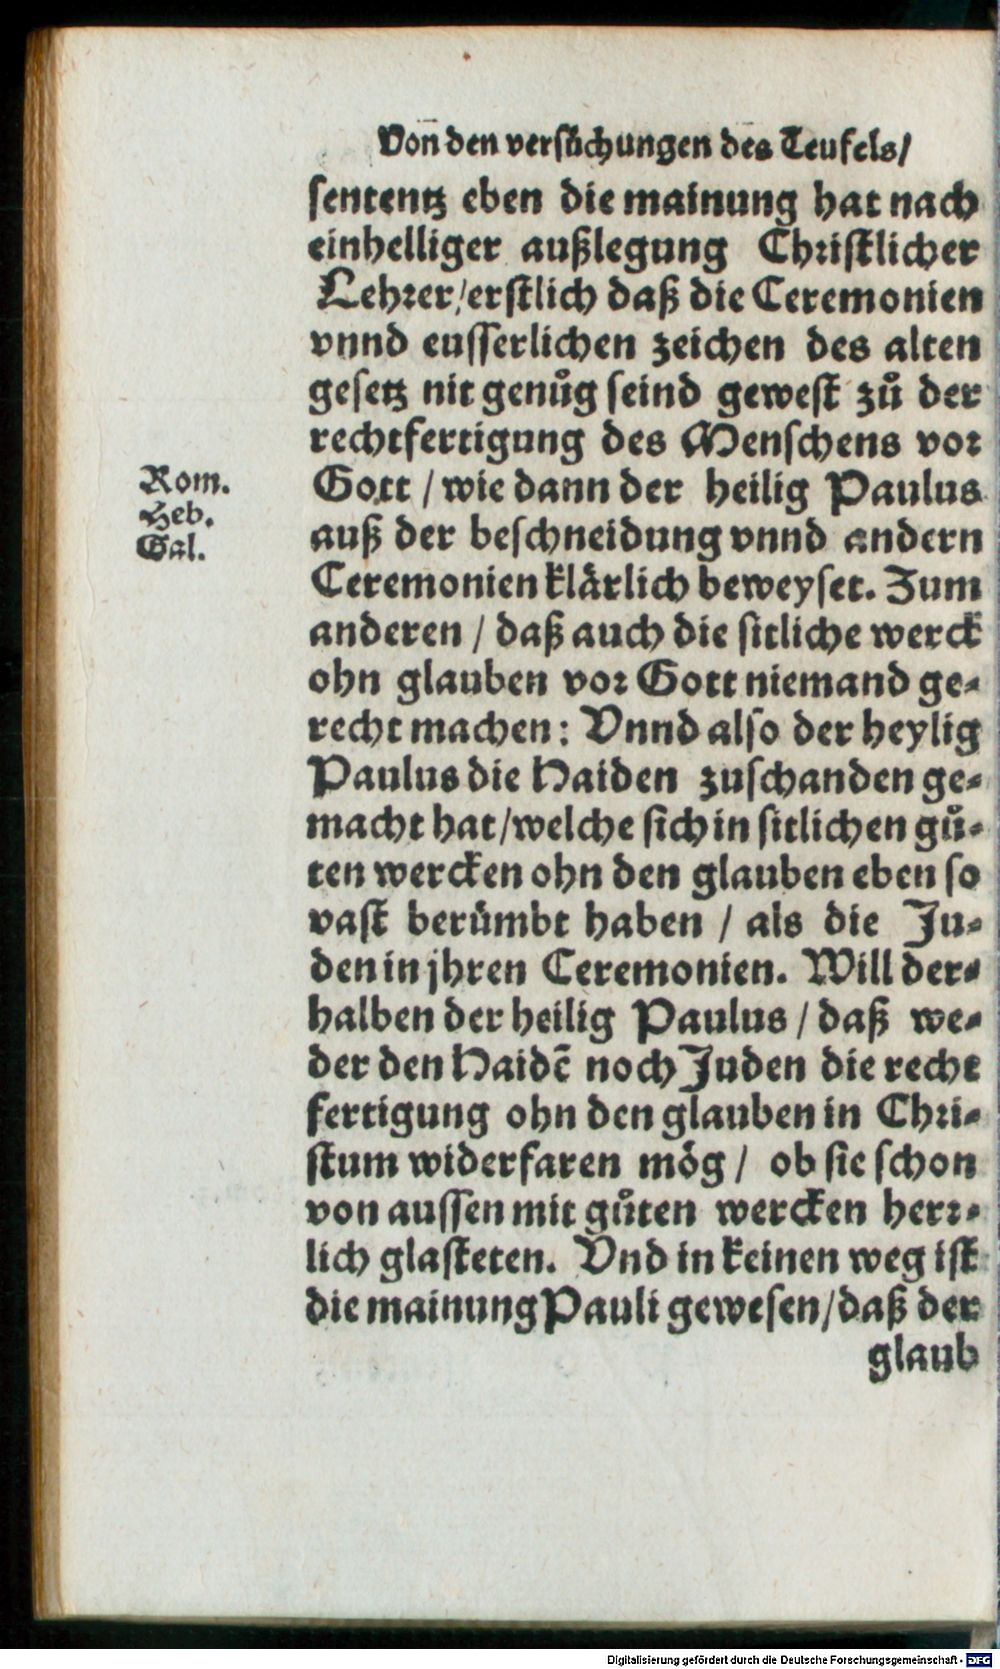 Von den versůchungen des Teufels/
sententz eben die mainung hat nach
einhelliger außlegung Christlicher
Lehrer/erstlich daß die Ceremonien
vnnd eusserlichen zeichen des alten
gesetz nit genůg seind gewest zů der
rechtfertigung des Menschens vor
Rom.
Heb.
Gal.
Gott / wie dann der heilig Paulus
auß der beschneidung vnnd andern
Ceremonien klärlich beweyset. Zum
anderen / daß auch die sitliche werck
ohn glauben vor Gott niemand ge-
recht machen: Vnnd also der heylig
Paulus die Haiden zuschanden ge-
macht hat/welche sich in sitlichen gů-
ten wercken ohn den glauben eben so
vast berümbt haben / als die Ju-
den in jhren Ceremonien. Will der-
halben der heilig Paulus / daß we-
der den Haidē noch Juden die recht
fertigung ohn den glauben in Chri-
stum widerfaren mög / ob sie schon
von aussen mit gůten wercken herr-
lich glasteten. Vnd in keinen weg ist
die mainung Pauli gewesen/daß der
glaub
Digitalisierung gefördert durch die Deutsche Forschungsgemeinschaft - DFG